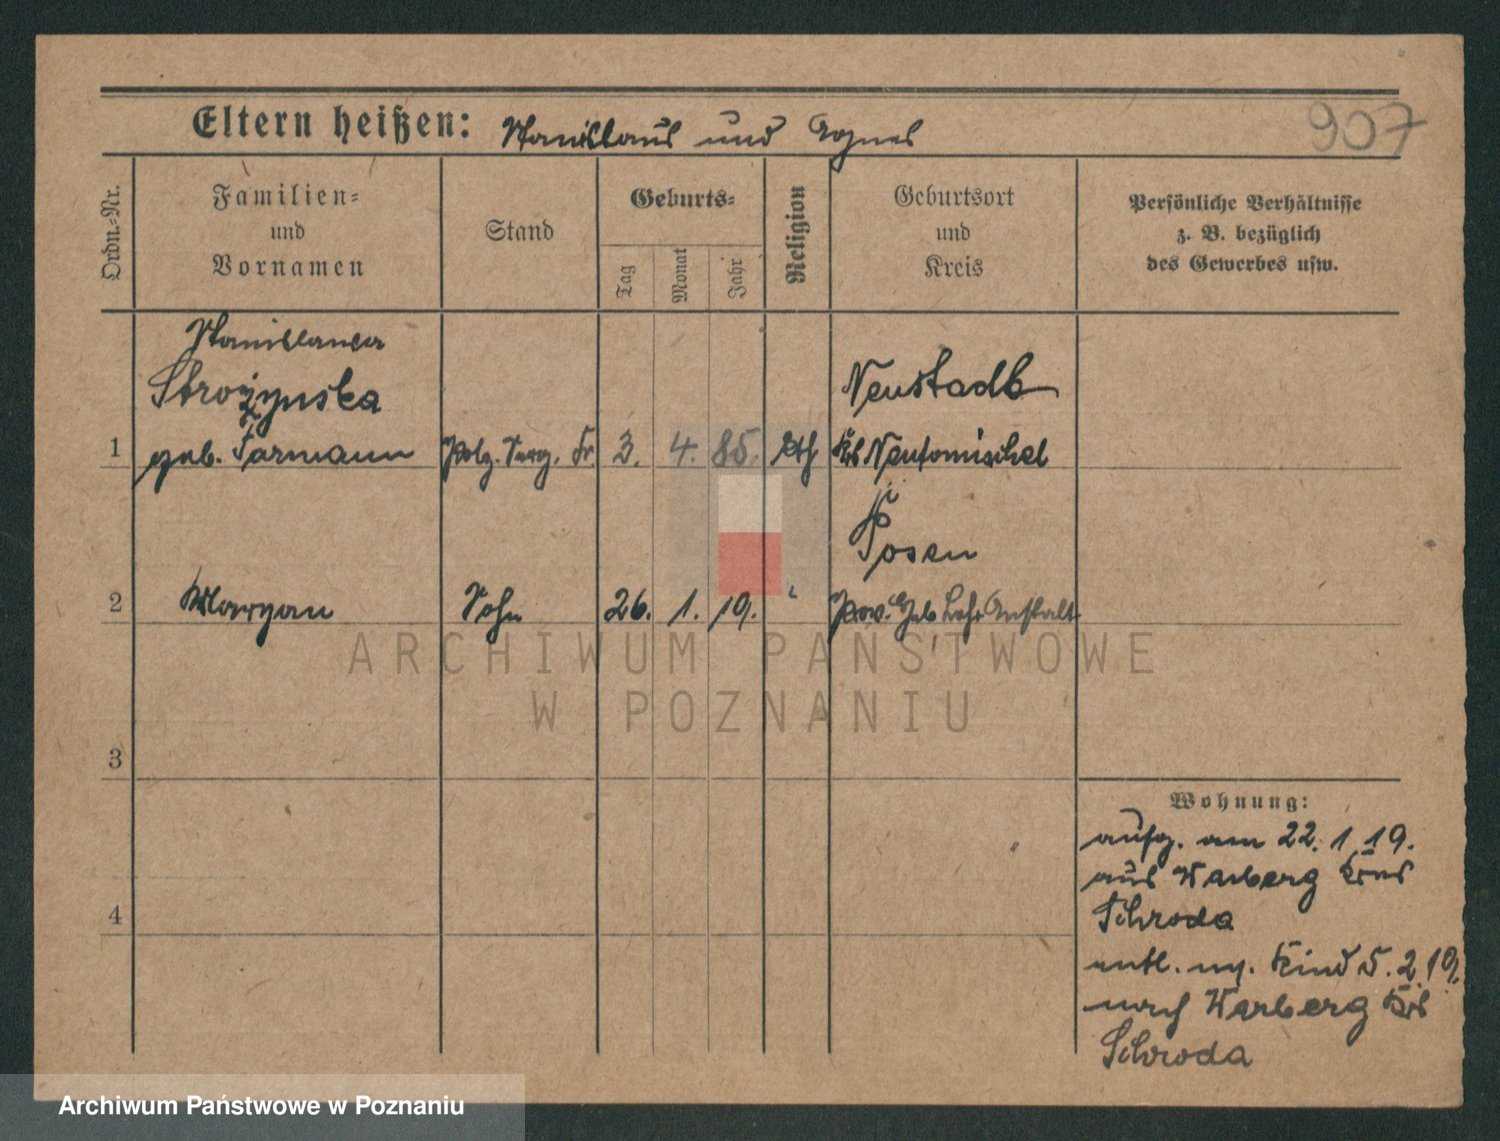 907
Eltern heißen: Stanislaus und Agnes
Ordn.-Nr.
Familien-
und
Vornamen
Stand
Geburts-
Tag
Monat
Jahr
Religion
Geburtsort
und
Kreis
Persönliche Verhältnisse
z. B. bezüglich
des Gewerbes usw.
Stanislawa
Strożynska
1 geb. Tarmann Polz. Serg. Fr. 3. 4. 85. kth
Neustadt
Krs Neutomischel
Posen
2 Maryan Sohn 26. 1. 19. "
Prov. Heb. Lehr Anstalt
3
4
Wohnung:
aufg. am 22. 1 19.
aus Warberg Kreis
Schroda
entl. m. Kind 5. 2. 19.
nach Warberg Krs
Schroda
ARCHIWUM PAŃSTWOWE
W POZNANIU
Archiwum Państwowe w Poznaniu